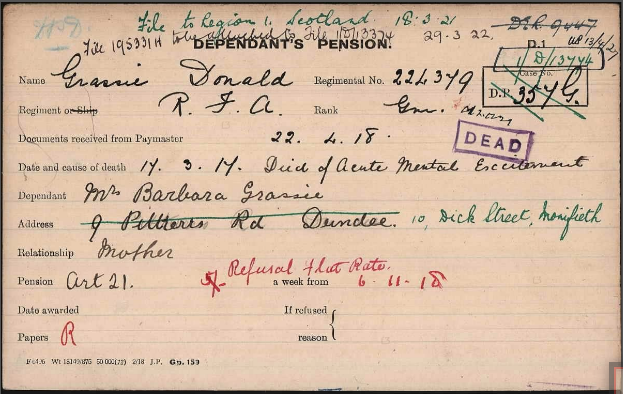 File to Region 1. Scotland. 18.3.21
File 195331H to be attached to File 1/D/13374 29.3.22
DEPENDANT'S PENSION.
D.1
1/D/13774
Case No.
D.P. 357 G.
Name Grassie Donald Regimental No. 224379
Regiment or Ship R. F. A. Rank Gnr.
Documents received from Paymaster 22. 4. 18.
DEAD
Date and cause of death 17. 3. 17. Died of Acute Mental Excitement
Dependant Mrs Barbara Grassie
Address 9 Rd Dundee. 10, Dick Street, Monifieth
Relationship Mother
Pension Art 21. 5/- Refusal Flat Rate. a week from 6-11-18
Date awarded If refused
Papers R reason
Wt 15149/876 50,000(12) 2/18 J.P. Gp. 159